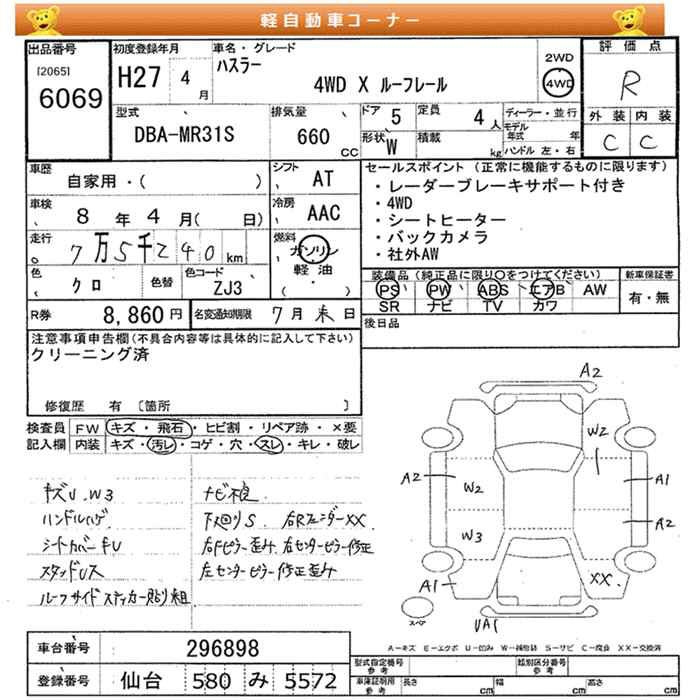 軽自動車コーナー
出品番号
[2065]
6069
初度登録年月
H27 4月
車名・グレード
ハスラー
4WD X ルーフレール
2WD
4WD
評価点
R
外装 内装
C C
型式
DBA-MR31S
排気量
660
CC
ドア 5
定員 4人
形状 W
積載 kg
ディーラー・並行
モデル年式 年
ハンドル 左・右
車歴
自家用・( )
シフト
AT
車検
8年4月( 日)
冷房
AAC
走行
7万5千240km
燃料
ガソリン
軽油
( ・ )
色
クロ
色替
色コード
ZJ3
R券
8,860円
名変通知期限
7月末日
セールスポイント(正常に機能するものに限ります)
・レーダーブレーキサポート付き
・4WD
・シートヒーター
・バックカメラ
・社外AW
装備品(純正品に限り○をつけてください)
PS PW ABS エアB AW
SR ナビ TV カワ
新車保証書
有・無
後日品
注意事項申告欄(不具合内容等は具体的に記入して下さい)
クリーニング済
修復歴 有 〔箇所 〕
検査員記入欄
FW キズ・飛石・ヒビ割・リペア跡・×要
内装 キズ・汚レ・コゲ・穴・スレ・キレ・破レ
キズU.W3
ハンドルハゲ
シートカバー キU
スタッドレス
ルーフサイドステッカー貼り粗
ナビ不良
下回りS 右Rフェンダー××
右Fピラー歪み 右センターピラー修正
左センターピラー修正歪み
A2
W2
A2
W2
A1
A2
W3
A1
XX
UA1
スペア
A=キズ E=エクボ U=凹み W=補修跡 S=サビ C=腐食 XX=交換済
車台番号
296898
登録番号
仙台 580 み 5572
型式指定番号
参考
類別区分番号
参考
自動車証明用
参考
長さ cm
幅 cm
高さ cm